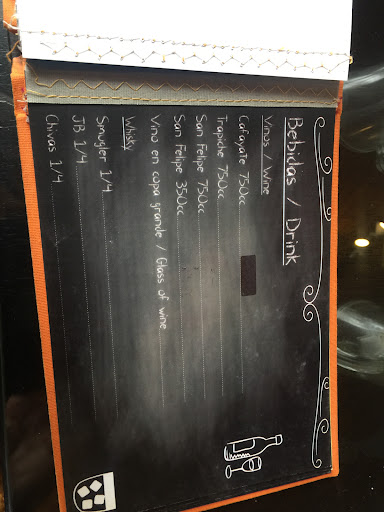 Bebidas / Drink
Vinos / Wine
Cafayate 750cc
Trapiche 750cc
San Felipe 750cc
San Felipe 350cc
Vino en copa grande / Glass of wine
Whisky
Smugler 1/4
JB 1/4
Chivas 1/4